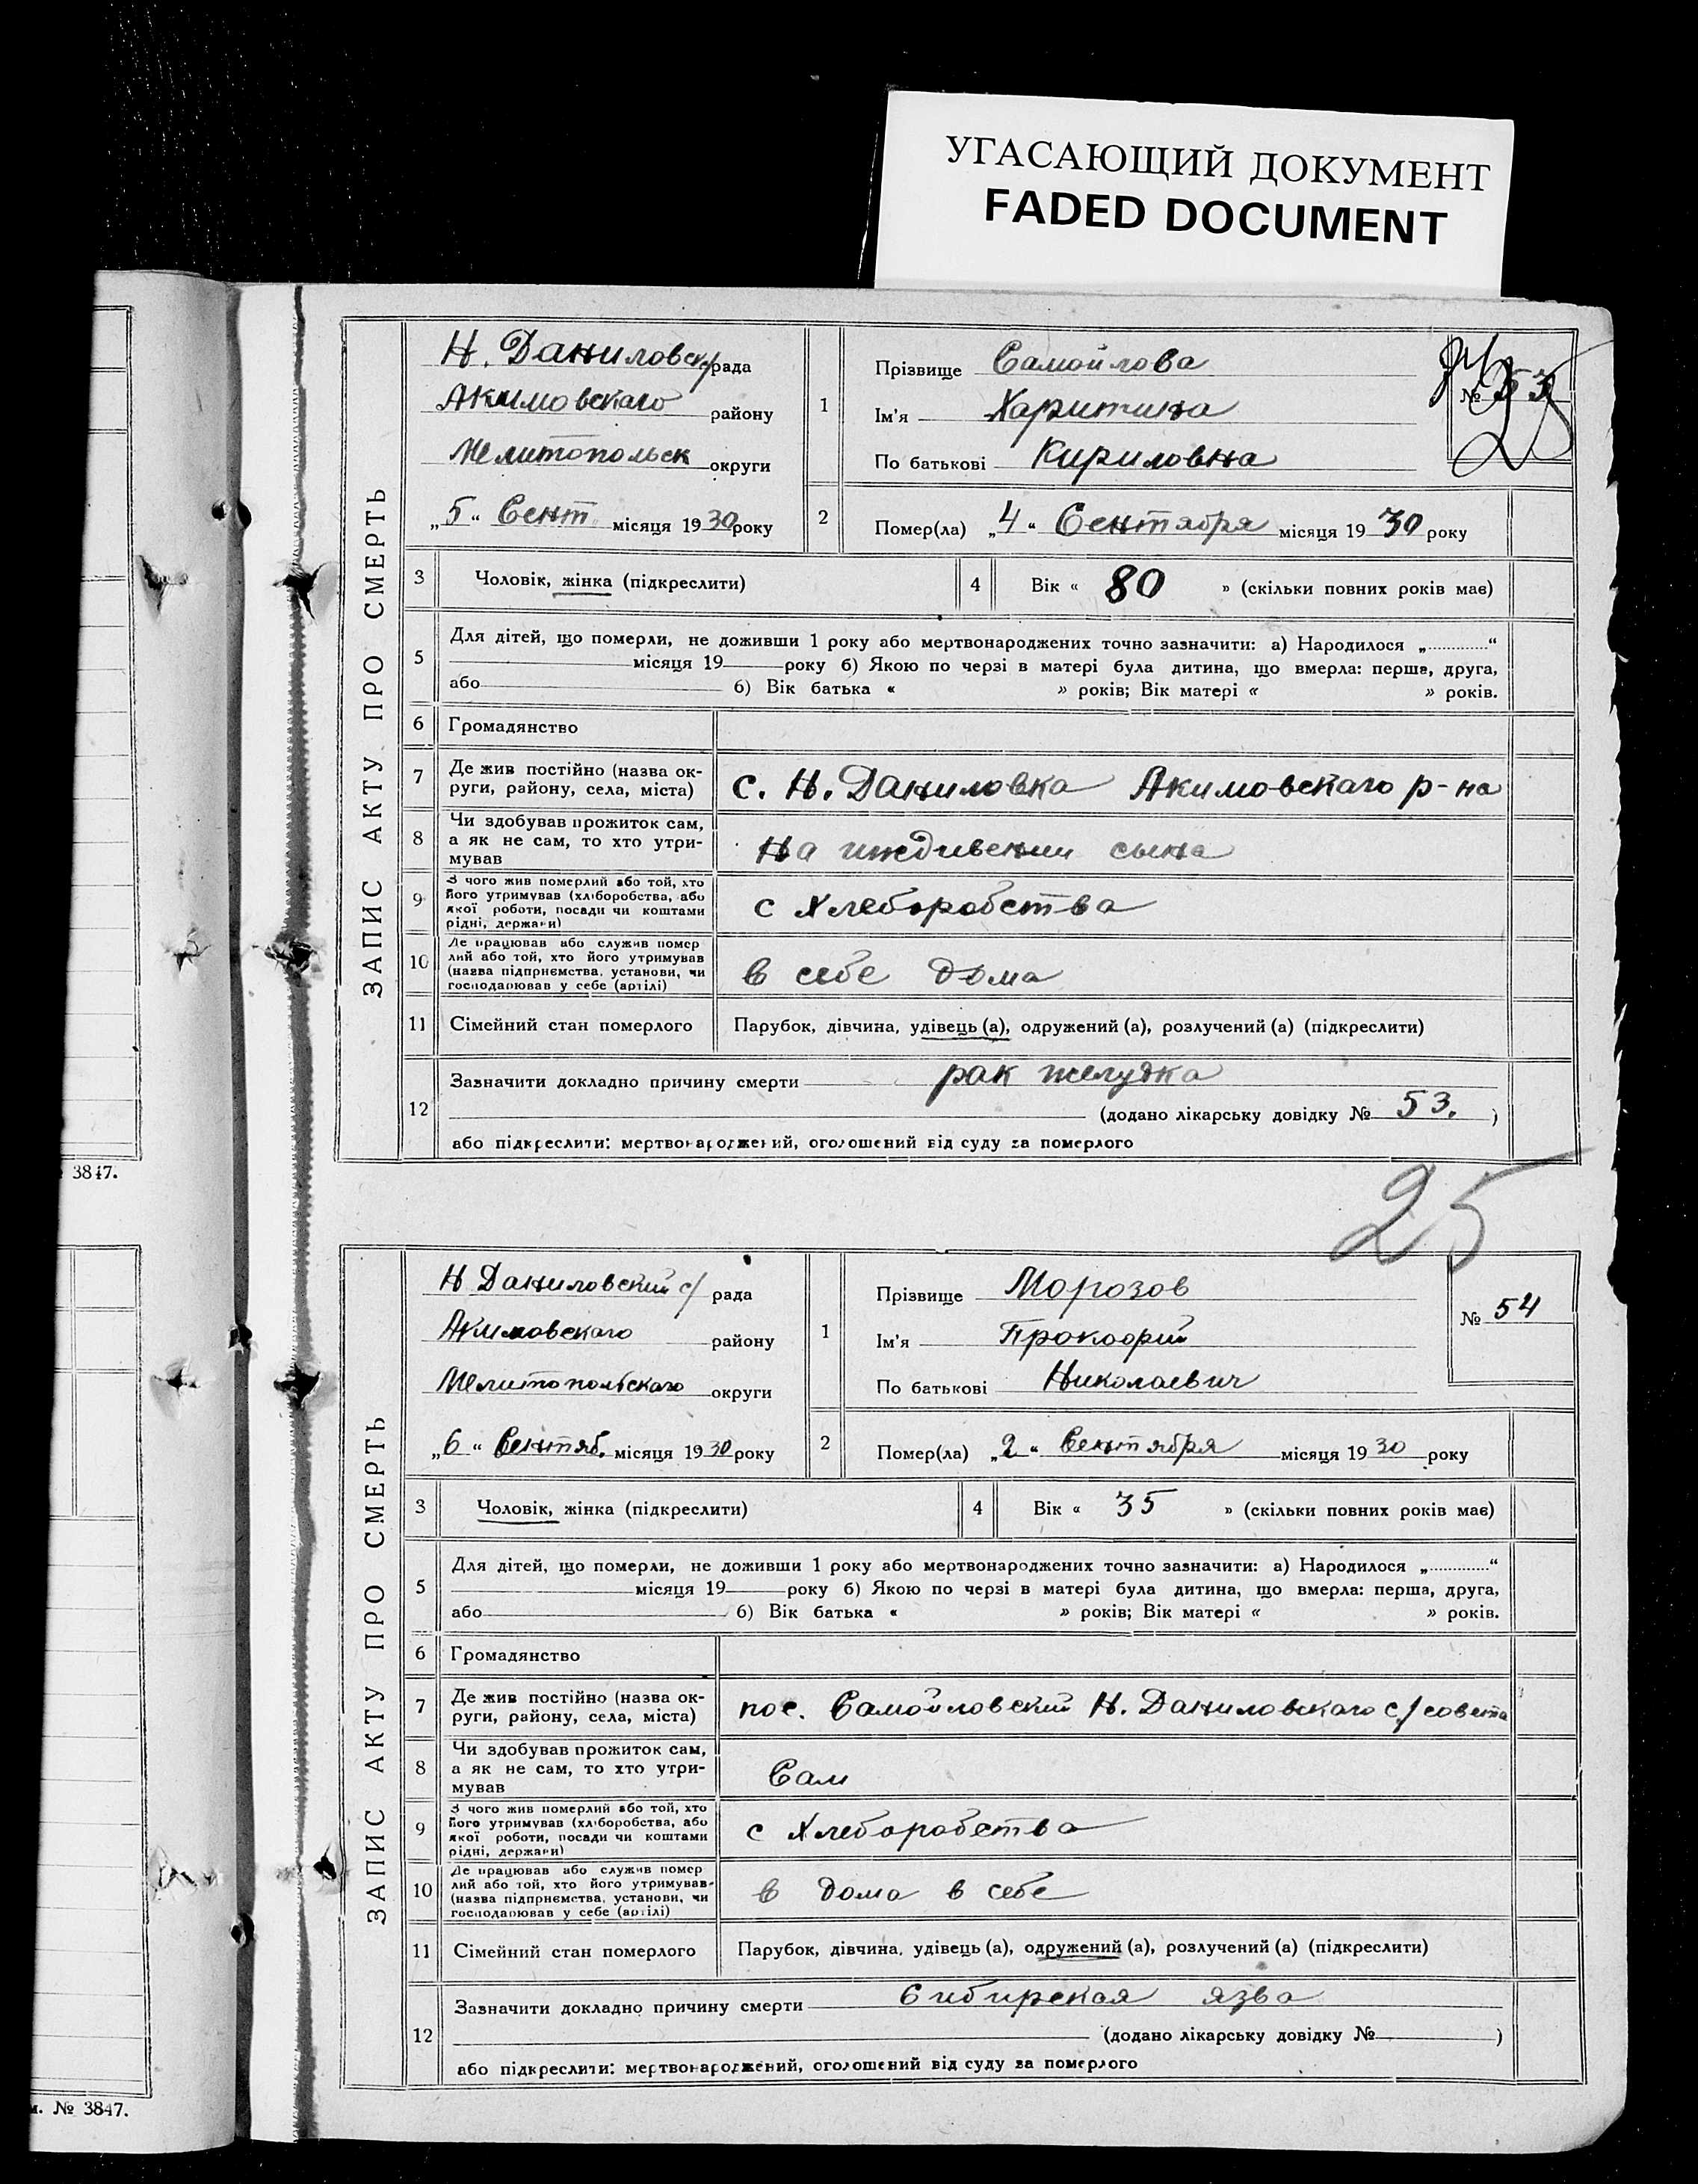 УГАСАЮЩИЙ ДОКУМЕНТ
FADED DOCUMENT
ЗАПИС АКТУ ПРО СМЕРТЬ
Н. Даниловск/рада
Акимовскаго району
Мелитопольск округи
„5“ Сент місяця 1930року
1
Прізвище Самойлова
Ім'я Харитина
По батькові Кириловна
№ 53
25
2
Помер(ла) „4“ Сентября місяця 1930 року
3 Чоловік, жінка (підкреслити)
4 Вік « 80 » (скільки повних років має)
5 Для дітей, що померли, не доживши 1 року або мертвонароджених точно зазначити: а) Народилося „............“
місяця 19 року б) Якою по черзі в матері була дитина, що вмерла: перша, друга,
або б) Вік батька « » років; Вік матері « » років.
6 Громадянство
7 Де жив постійно (назва ок-
руги, району, села, міста)
с. Н. Даниловка Акимовскаго р-на
8 Чи здобував прожиток сам,
а як не сам, то хто утри-
мував
На иждивении сына
9 З чого жив померлий або той, хто
його утримував (хліборобства, або
якої роботи, посади чи коштами
рідні, держави)
с Хлеборобства
10 Де працював або служив помер
лий або той, хто його утримував
(назва підприємства, установи, чи
господарював у себе (артілі)
в себе дома
11 Сімейний стан померлого
Парубок, дівчина, удівець (а), одружений (а), розлучений (а) (підкреслити)
12 Зазначити докладно причину смерти рак желудка
(додано лікарську довідку № 53. )
або підкреслити: мертвонароджений, оголошений від суду за померлого
3847.
25
ЗАПИС АКТУ ПРО СМЕРТЬ
Н Даниловский с/ рада
Акимовскаго району
Мелитопольскаго округи
„6“ Сентяб. місяця 1930року
1
Прізвище Морозов
Ім'я Прокофий
По батькові Николаевич
№ 54
2
Помер(ла) „2“ Сентября місяця 1930 року
3 Чоловік, жінка (підкреслити)
4 Вік « 35 » (скільки повних років має)
5 Для дітей, що померли, не доживши 1 року або мертвонароджених точно зазначити: а) Народилося „............“
місяця 19 року б) Якою по черзі в матері була дитина, що вмерла: перша, друга,
або б) Вік батька « » років; Вік матері « » років.
6 Громадянство
7 Де жив постійно (назва ок-
руги, району, села, міста)
пос. Самойловский Н. Даниловскаго с/совета
8 Чи здобував прожиток сам,
а як не сам, то хто утри-
мував
Сам
9 З чого жив померлий або той, хто
його утримував (хліборобства, або
якої роботи, посади чи коштами
рідні, держави)
с Хлеборобства
10 Де працював або служив помер
лий або той, хто його утримував
(назва підприємства, установи, чи
господарював у себе (артілі)
в дома в себе
11 Сімейний стан померлого
Парубок, дівчина, удівець (а), одружений (а), розлучений (а) (підкреслити)
12 Зазначити докладно причину смерти Сибирская язва
(додано лікарську довідку № )
або підкреслити: мертвонароджений, оголошений від суду за померлого
м. № 3847.